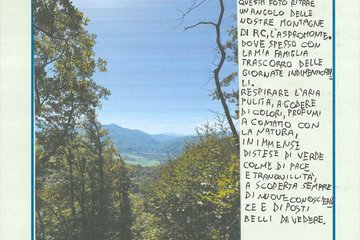 QUESTA FOTO RITRAE
UN ANGOLO DELLE
NOSTRE MONTAGNE
DI RC, L'ASPROMONTE.
DOVE SPESSO CON
LA MIA FAMIGLIA
TRASCORRO DELLE
GIORNATE INDIMENTICABI
LI.
RESPIRARE L'ARIA
PULITA, A GODERE
DI COLORI, PROFUMI
A CONTATTO CON
LA NATURA,
IN IMMENSE
DISTESE DI VERDE
COLME DI PACE
E TRANQUILLITA',
A SCOPERTA SEMPRE
DI NUOVE CONOSCEN
ZE E DI POSTI
BELLI DA VEDERE.